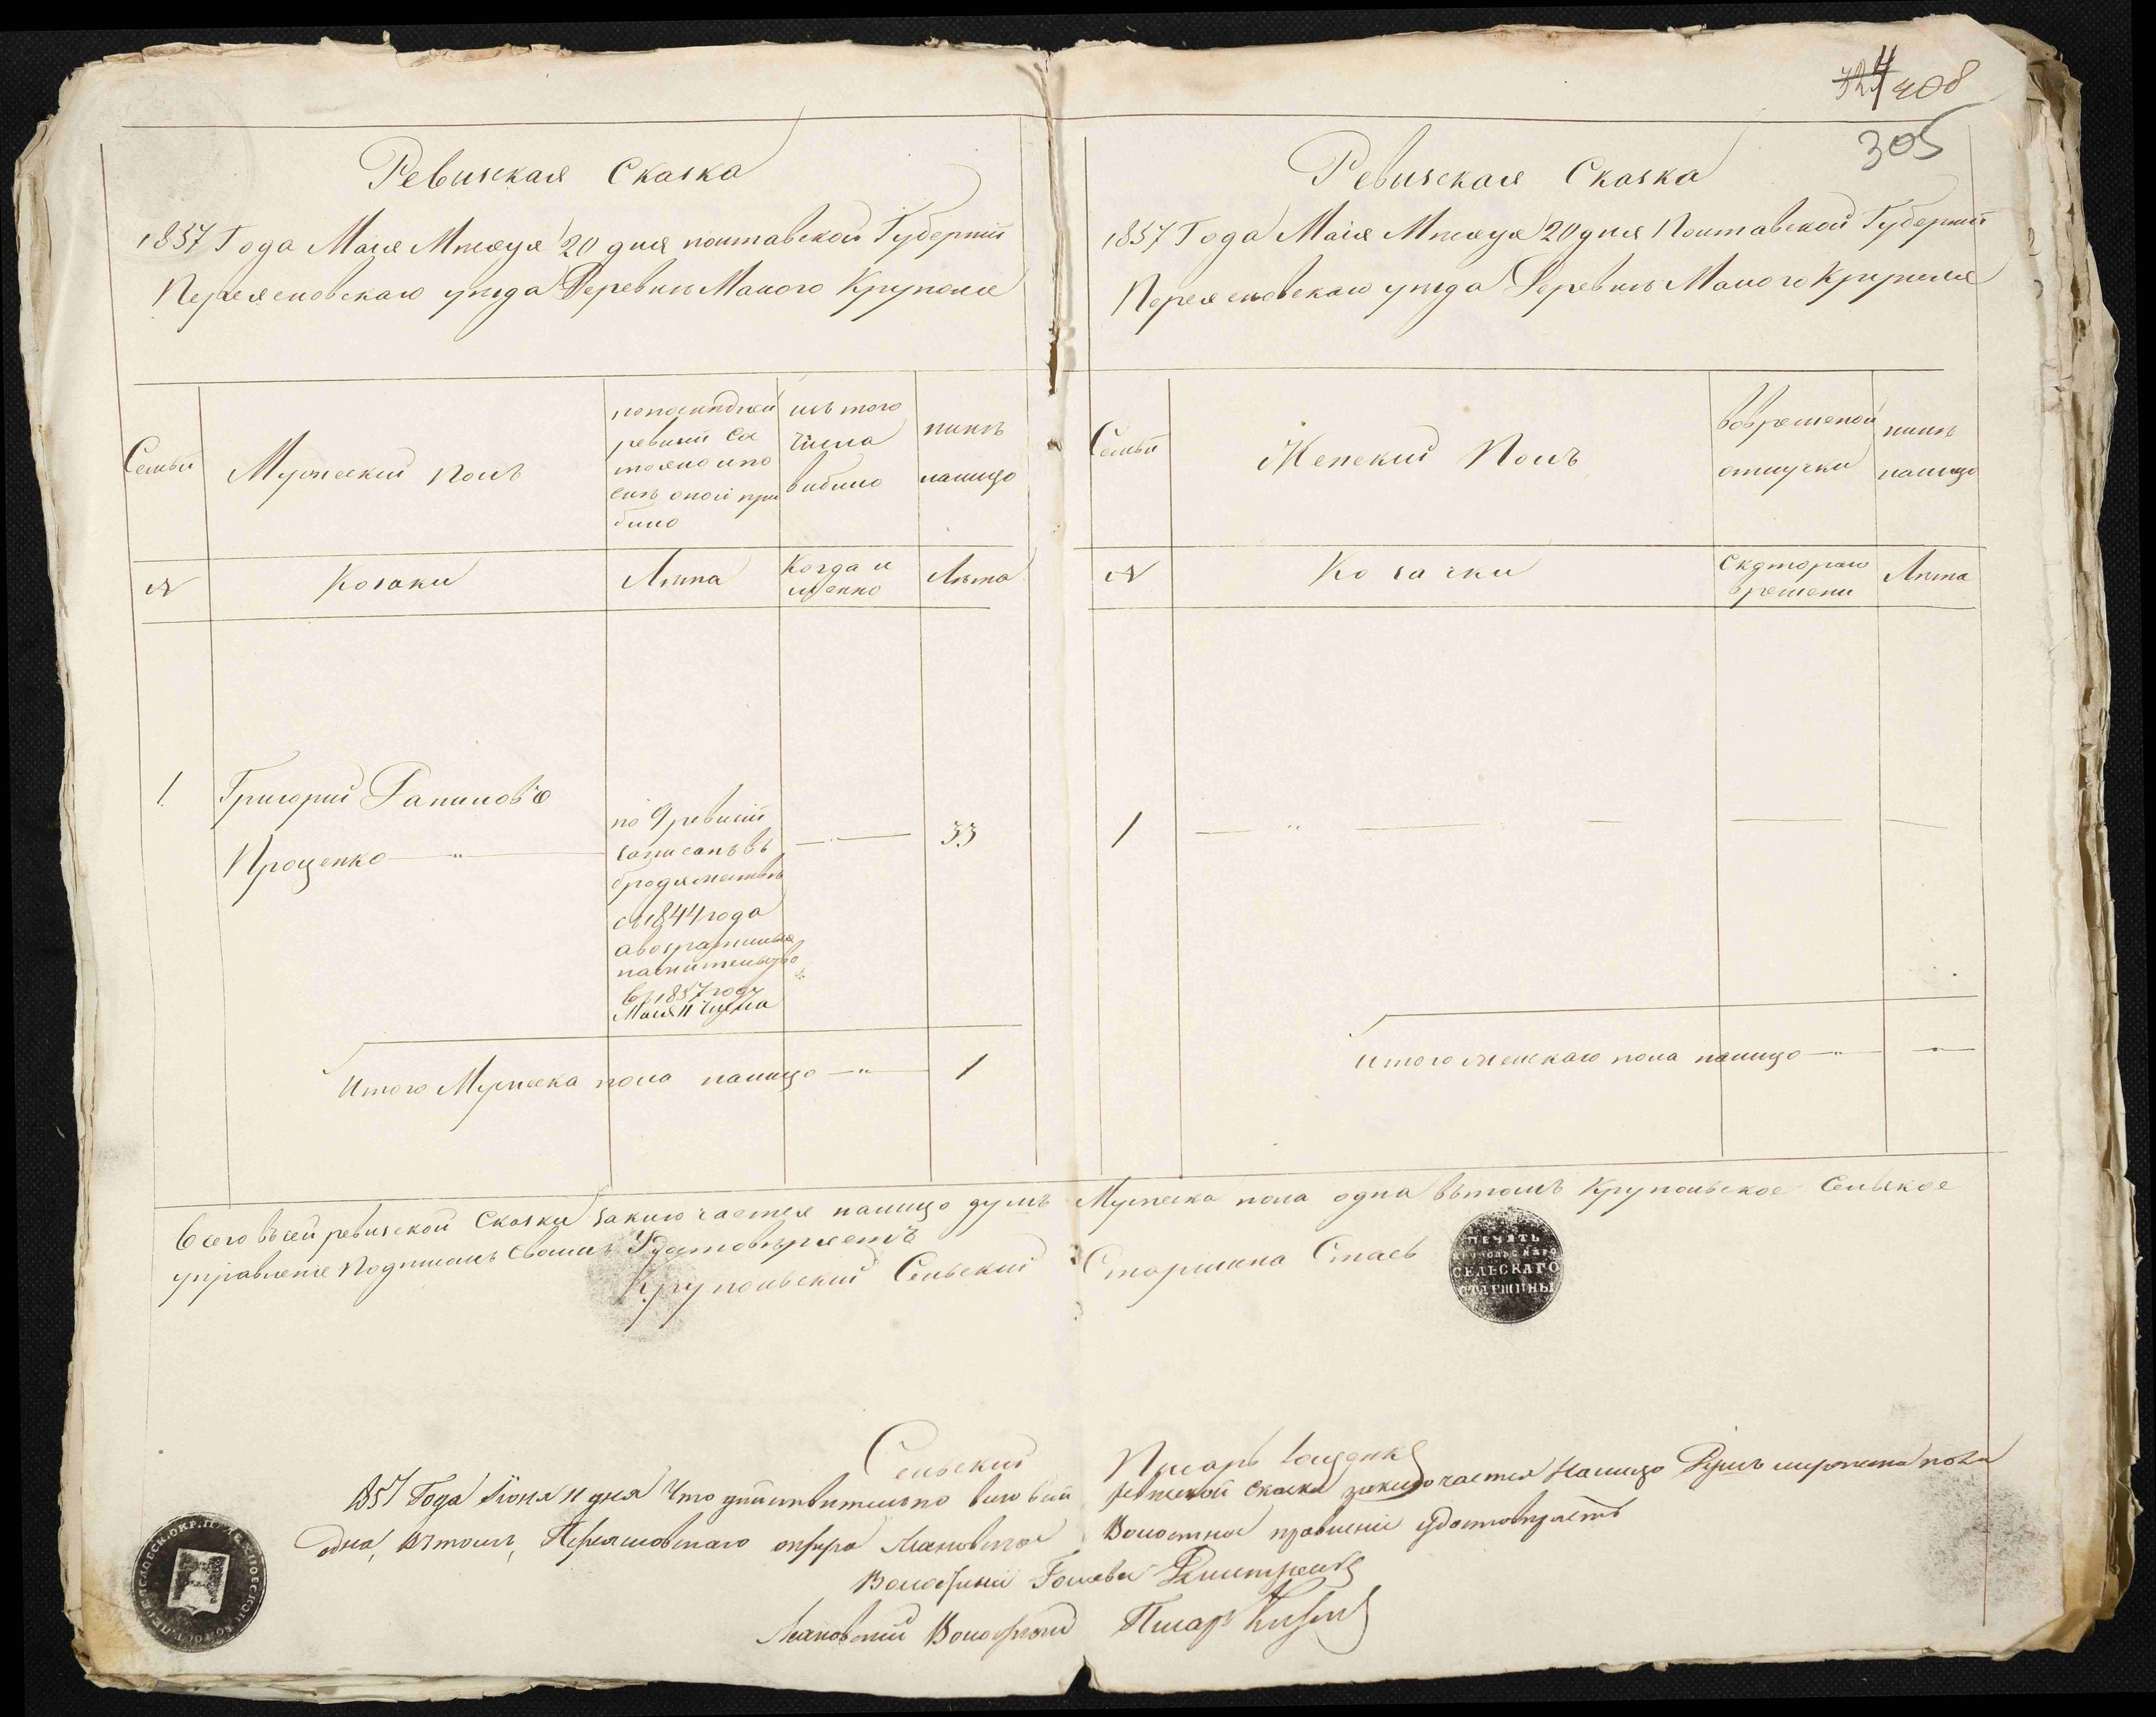 408
305
Ревизская Сказка
1857 Года Маія Мѣсяца 20 дня полтавской Губерніи
Переясловскаго уѣзда Деревни Малого Круполя
Семьи
Мужеский полъ
попоследней
ревизіи Со
тояло ипо
слѣ оной при
било
изъ того
числа
вибило
нинѣ
налицо
№
Козаки
Лѣта
Когда и
менно
Лѣта
1
Григорий
Проценко
по 9 ревизіи
записанъ въ
бродяжествѣ
съ 1844 года
авозратился
нажительство
въ 1857 году
Маія 11 числа
33
Итого Мужеска пола налицо 1
Ревизская Сказка
1857 Года Маія Мѣсяца 20 дня Полтавской Губерніи
Переясловскаго уѣзда Деревни Малого Круполя
Семьи
Женский Полъ
вовременой
отлучки
нинѣ
налицо
№
Козачки
Скотораго
времени
Лѣта
1
Итого женскаго пола налицо
Всего всей ревизской Сказки заключается налицо душъ Мужеска пола одна вътомъ Крупольское Сельское
управленіе Подписомъ Своимъ Удостовѣряетъ
Крупольский Сельский Старшина Стась
ПЕЧАТЬ
КРУПОЛЬСКАГО
СЕЛЬСКАГО
СТАРШИНЫ
Сельский Писарь
1857 Года Іюня 11 дня Что дѣйствительно всей ревизской сказки заключается Налицо Душъ мужеска пола
одна, Вътомъ, Переясловскаго округа Волостное правленіе Удостовѣряетъ
Волостный Голова Дмитренко
Волостной Писарь